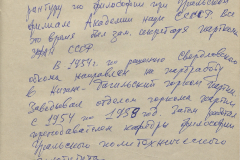 рантуру по философии при Уральском
филиале Академии наук СССР. Все
это время был зам. секретаря парткома
УФАН СССР
В 1954г. по решению Свердловского
обкома направлен на партработу
в Нижне-Тагильский горком партии.
Заведовал отделом горкома партии
с 1954 по 1959 год. Затем работал
преподавателем кафедры философии
Уральского политехнического